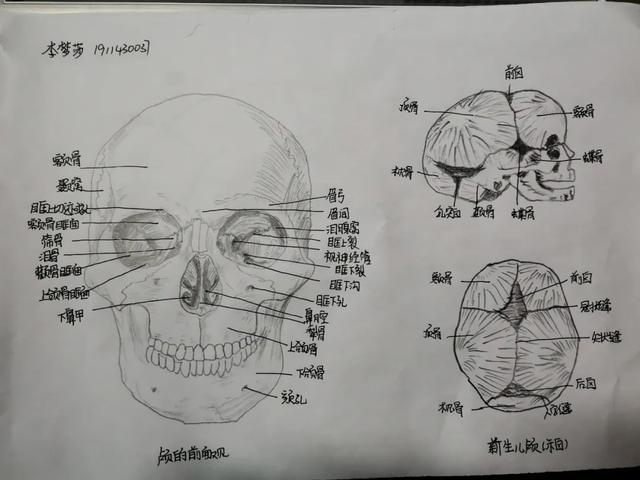 李梦莎 191143003
额骨
颞窝
眶上切迹
额骨眶面
筛骨
泪骨
颧骨眶面
上颌骨眶面
下鼻甲
眉弓
眉间
泪腺窝
眶上裂
视神经管
眶下裂
眶下沟
眶下孔
鼻腔
犁骨
上颌骨
下颌骨
颏孔
颅的前面观
前囟
顶骨
额骨
枕骨
蝶骨
乳突囟
颞骨
蝶骨
额骨
前囟
冠状缝
顶骨
矢状缝
后囟
枕骨
人字缝
新生儿颅(示囟)